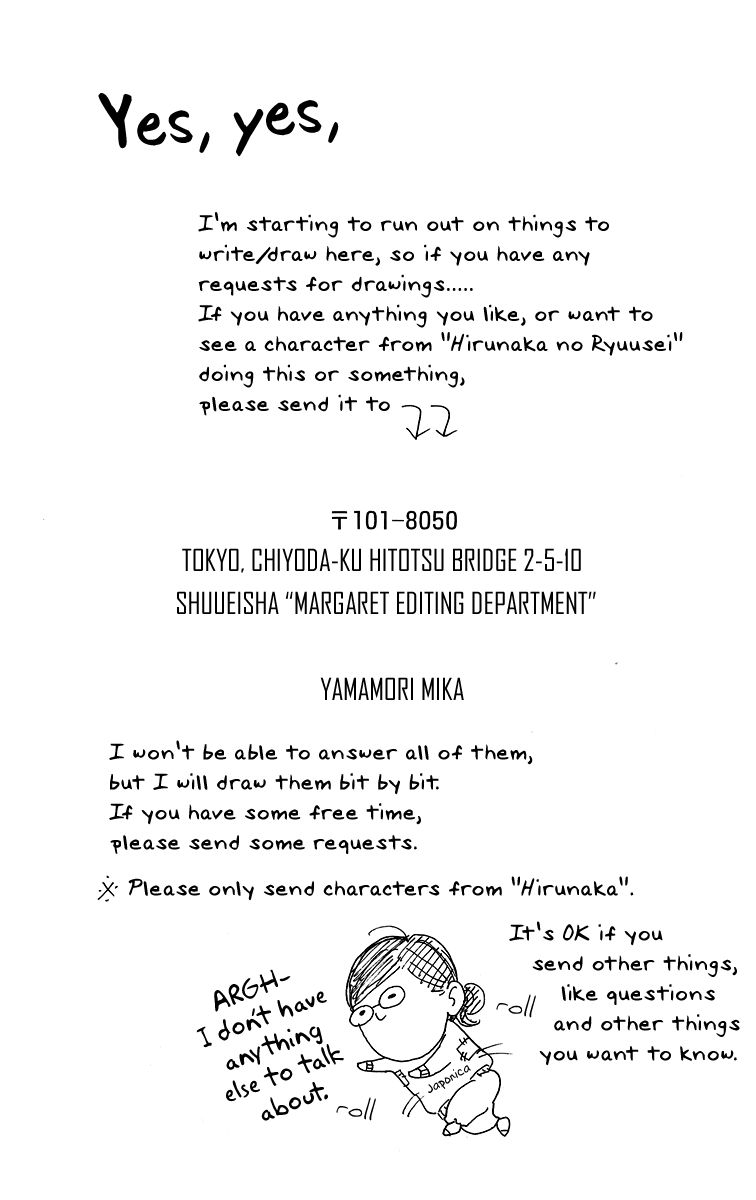 Yes, yes,
I'm starting to run out on things to
write/draw here, so if you have any
requests for drawings.....
If you have anything you like, or want to
see a character from "Hirunaka no Ryuusei"
doing this or something,
please send it to
〒101-8050
TOKYO, CHIYODA-KU HITOTSU BRIDGE 2-5-10
SHUUEISHA “MARGARET EDITING DEPARTMENT”
YAMAMORI MIKA
I won't be able to answer all of them,
but I will draw them bit by bit.
If you have some free time,
please send some requests.
※ Please only send characters from "Hirunaka".
It's OK if you
send other things,
like questions
and other things
you want to know.
ARGH-
I don't have
anything
else to talk
about.
roll
roll
Japonica